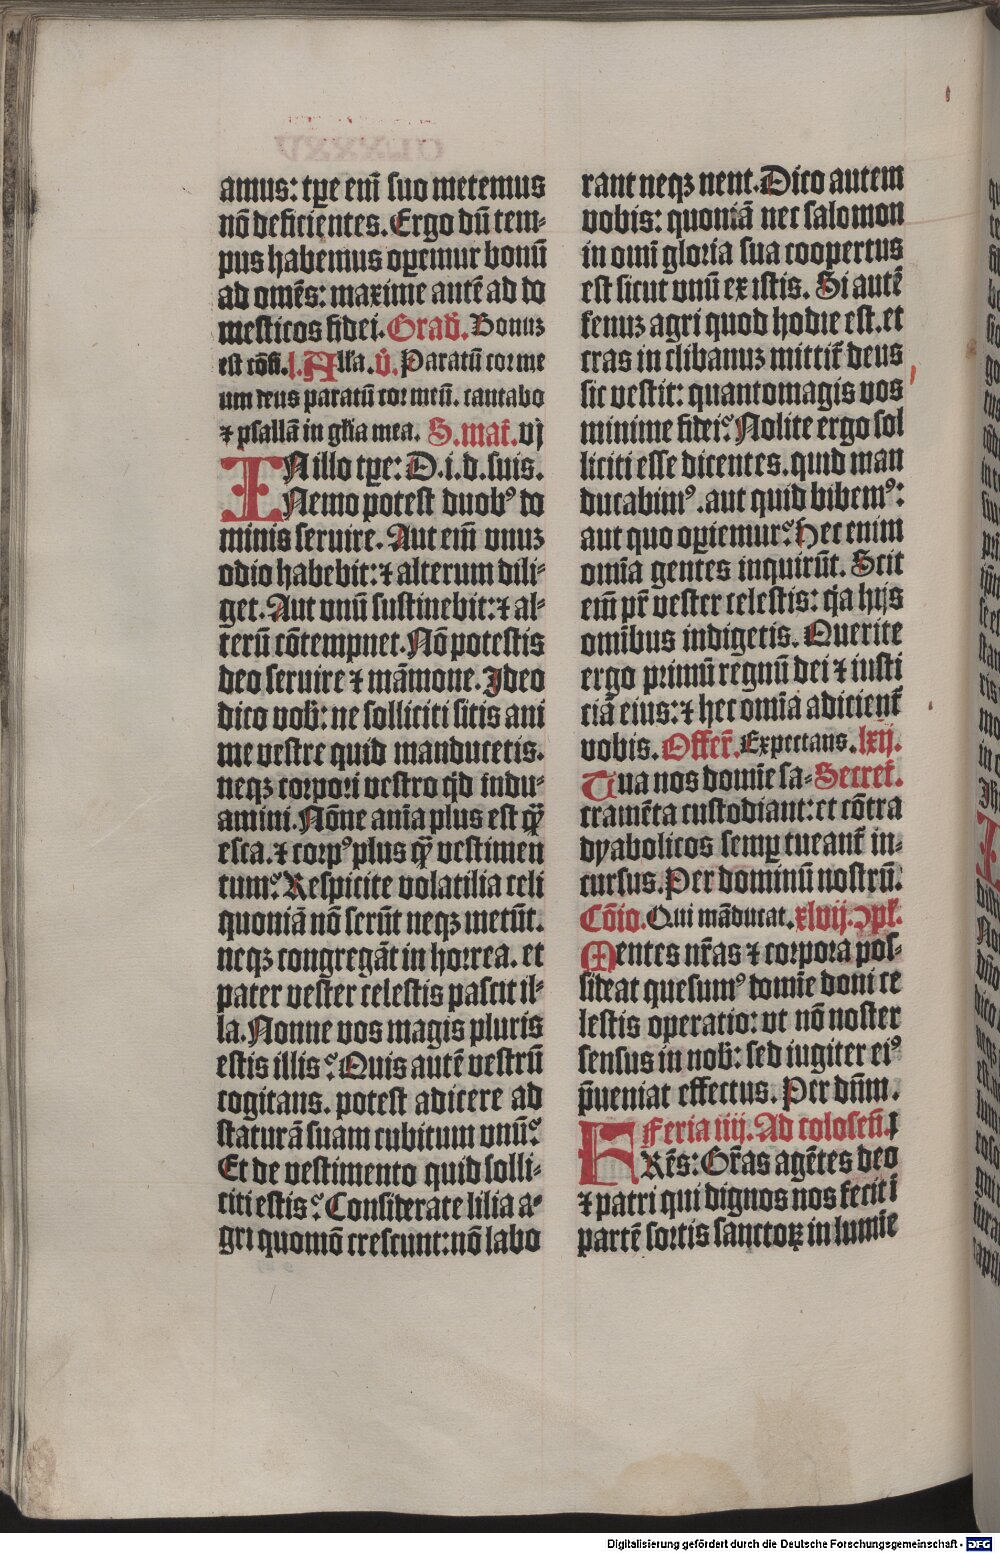 amus: tꝑe eni͂ suo metemus
nō deficientes. Ergo dū tem-
pus habemus oꝑemur bonū
ad om̄es: maxime autē ad do
mesticos fidei. Grad̄. Bonuꝫ
est cōfi. l. Alla. v̄. Paratū cor me
um deus paratū cor meū. cantabo
⁊ psallā in gl̄ia mea. S. mat̄. vj
IN illo tꝑe: D. i. d. suis.
Nemo potest duobꝰ do
minis seruire. Aut eni͂ vnuꝫ
odio habebit: ⁊ alterum dili-
get. Aut vnū sustinebit: ⁊ al-
terū cōtempnet. Nō potestis
deo seruire ⁊ māmone. Ideo
dico vob̄: ne solliciti sitis ani
me vestre quid manducetis.
neqꝫ corpori vestro qͥd indu-
amini. Nōne ani͂a plus est qͣꝫ
esca. ⁊ corpꝰ plus qͣꝫ vestimen
tum? Respicite volatilia celi
quoniā nō serūt neqꝫ metūt.
neqꝫ congregāt in horrea. et
pater vester celestis pascit il-
la. Nonne vos magis pluris
estis illis? Quis autē vestrū
cogitans. potest adicere ad
staturā suam cubitum vnū?
Et de vestimento quid solli-
citi estis? Considerate lilia a-
gri quomō crescunt: nō labo
rant neqꝫ nent. Dico autem
vobis: quoniā nec salomon
in omī gloria sua coopertus
est sicut vnū ex istis. Si autē
fenuꝫ agri quod hodie est. et
cras in clibanuꝫ mittit̄ deus
sic vestit: quantomagis vos
minime fidei? Nolite ergo sol
liciti esse dicentes. quid man
ducabimꝰ. aut quid bibemꝰ:
aut quo oꝑiemur? Hec enim
omīa gentes inquirūt. Scit
eni͂ pr̄ vester celestis: qͥa hijs
omībus indigetis. Querite
ergo primū regnū dei ⁊ iusti
ciā eius: ⁊ hec omīa adicient̄
vobis. Offer̄. Expectans. lxij.
Tua nos domīe sa- Secret̄.
cramēta custodiant: et cōtra
dyabolicos semꝑ tueant̄ in-
cursus. Per dominū nostrū.
Cōio. Qui māducat. xlvij. ↄpl̄.
Mentes nr̄as ⁊ corpora pos-
sideat quesumꝰ domīe doni ce
lestis operatio: vt nō noster
sensus in nob̄: sed iugiter eiꝰ
p̄ueniat effectus. Per dn̄m.
Feria iiij. Ad colosen̄. j
FRēs: Gr̄as agētes deo
⁊ patri qui dignos nos fecit ī
partē sortis sanctoꝝ in lumīe
Digitalisierung gefördert durch die Deutsche Forschungsgemeinschaft - DFG